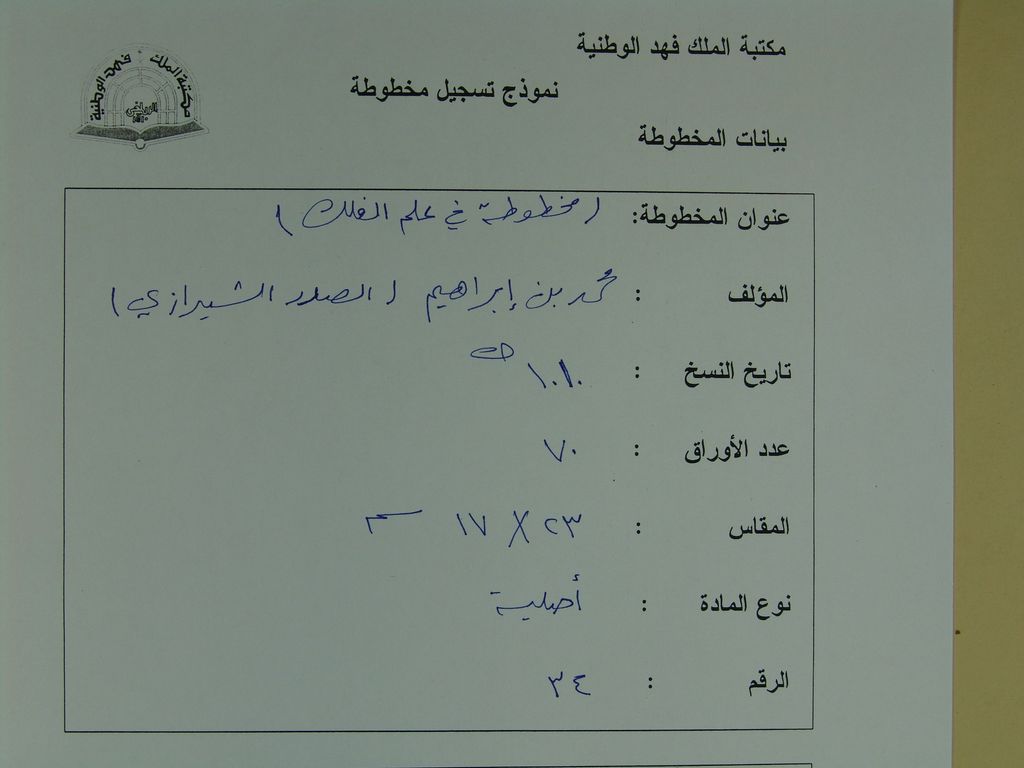 مكتبة الملك فهد الوطنية
مكتبة الملك فهد الوطنية
الرياض
نموذج تسجيل مخطوطة
بيانات المخطوطة
عنوان المخطوطة: (مخطوطة في علم الفلك)
المؤلف : محمد بن إبراهيم (الصدر الشيرازي)
تاريخ النسخ :
عدد الأوراق : ٧٠
المقاس : ٢٣ X ١٧ سم
نوع المادة : أصلية
الرقم : ٣٤